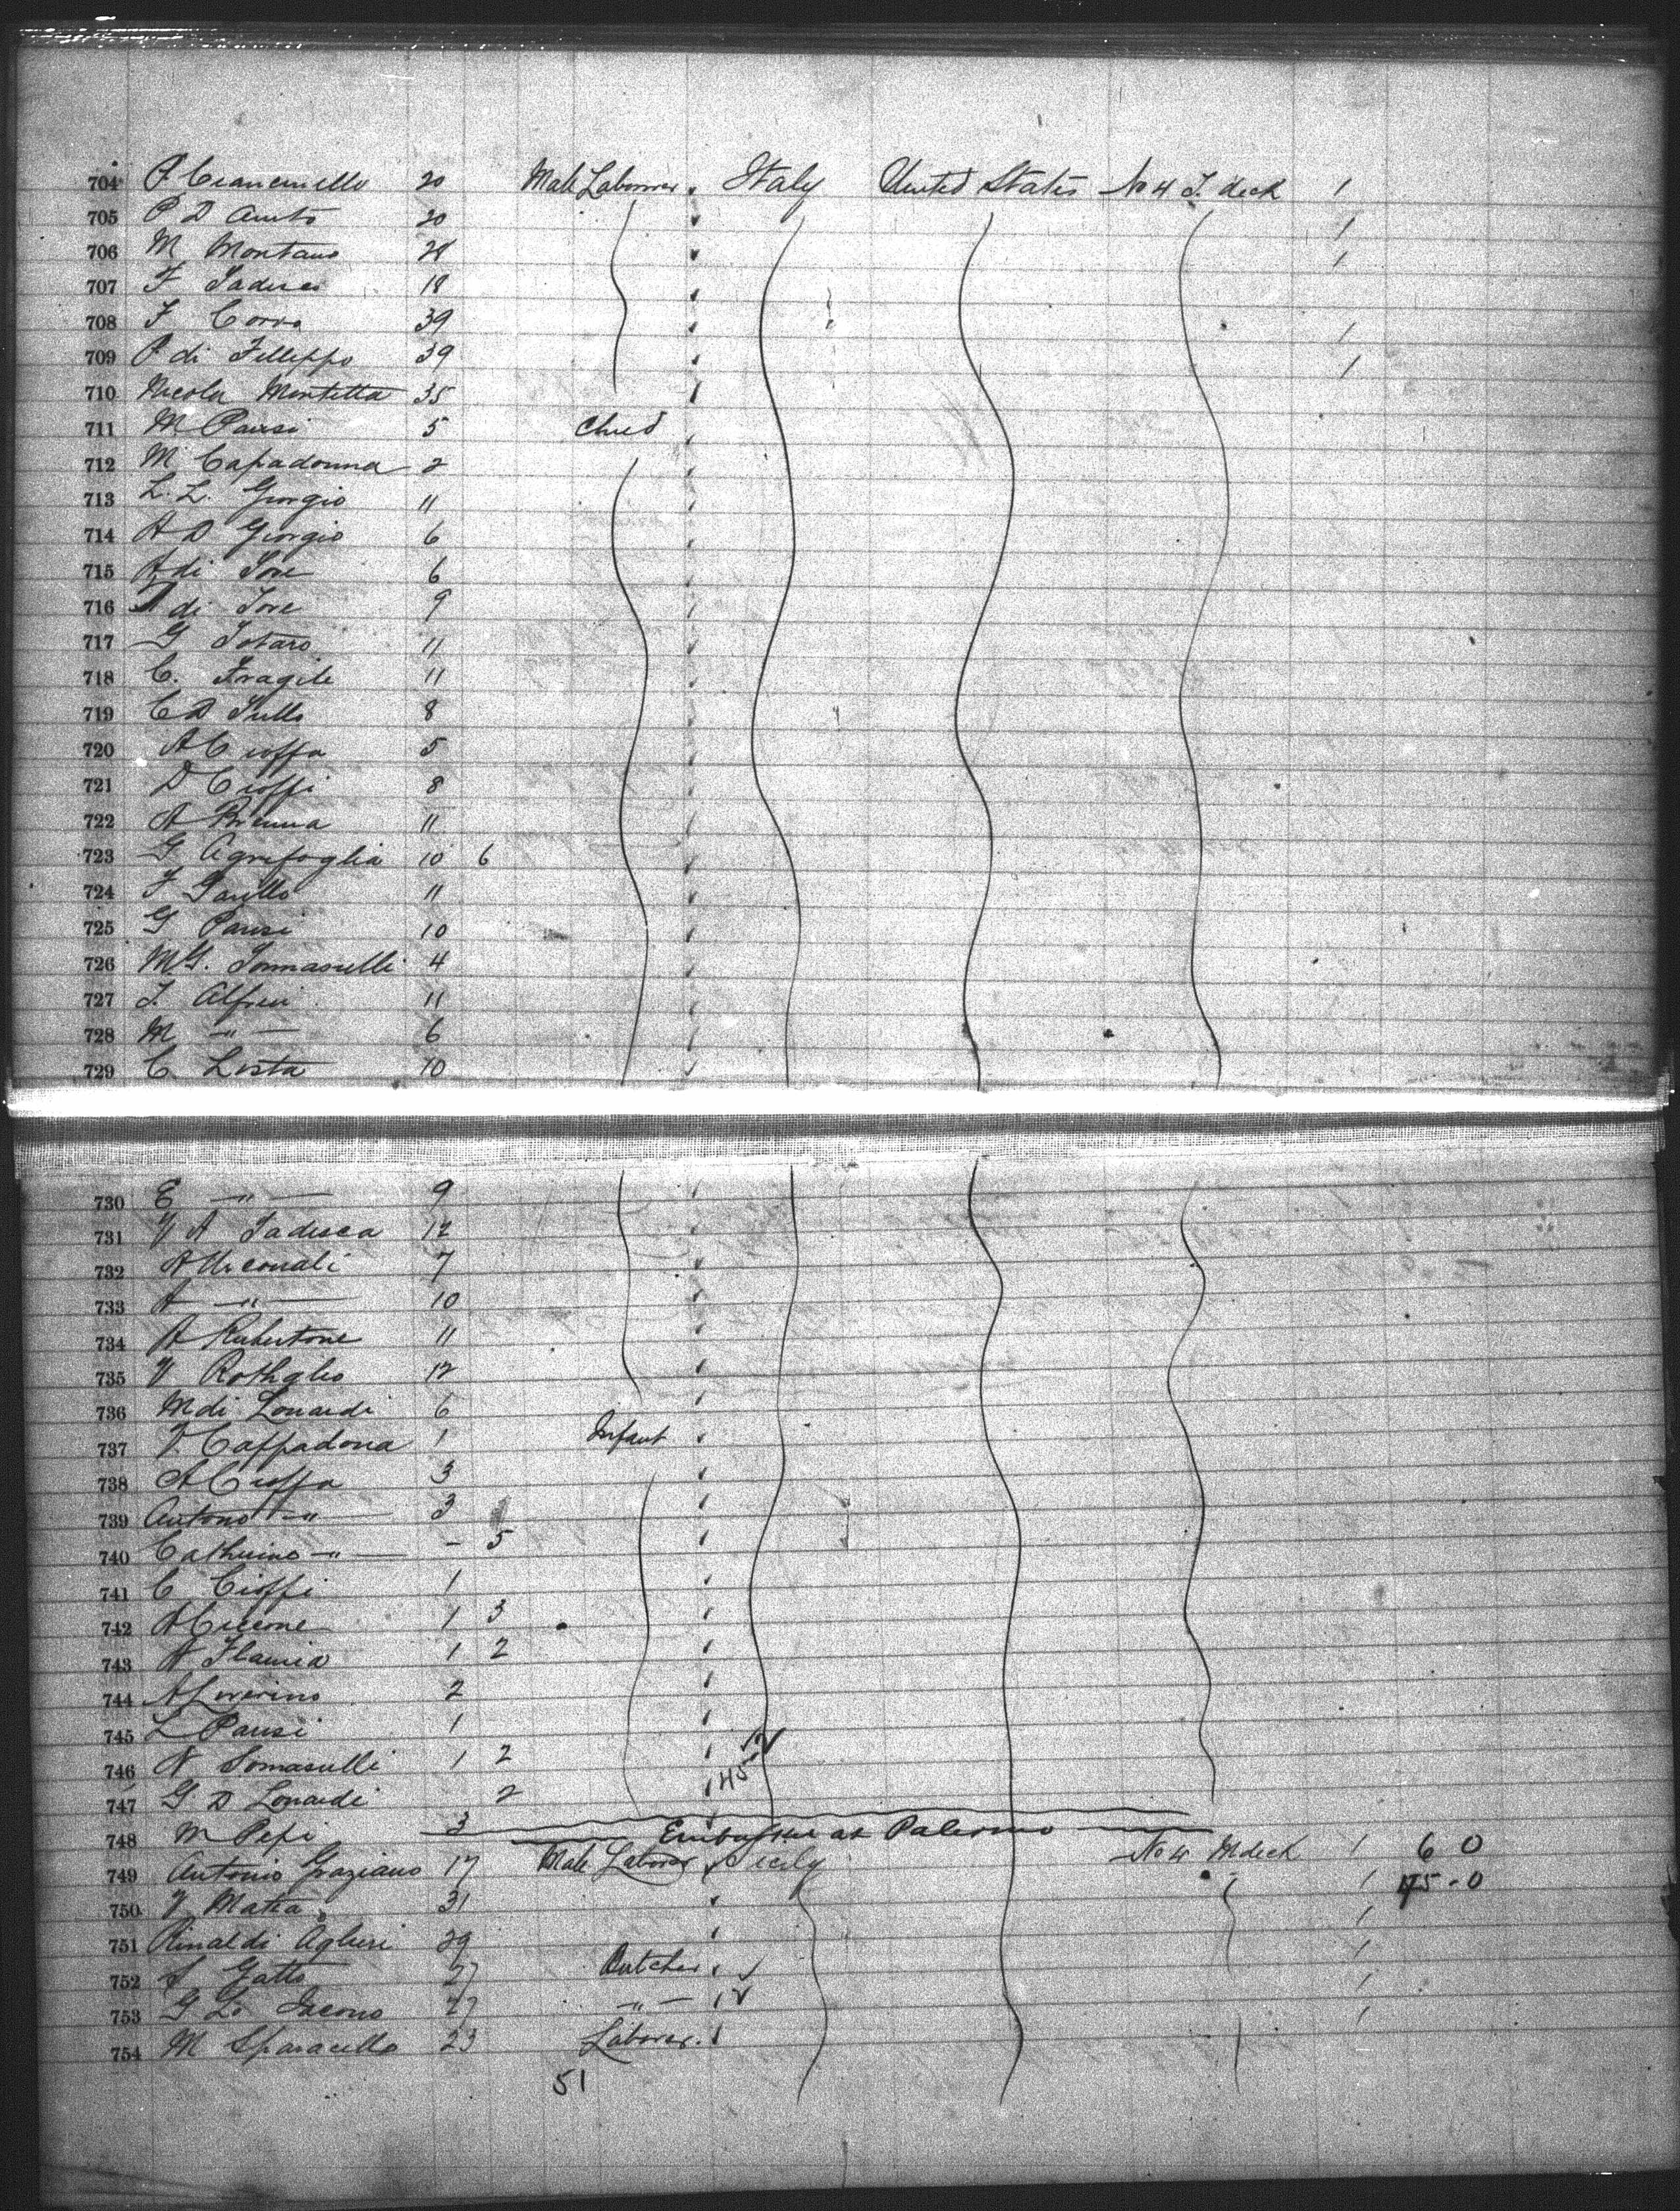 704 P. Ciancimillo 20 Male Laborer Italy United States No 4 T. deck 1
705 P D Amito 20 1
706 M Montano 28 1
707 F Tadesci 18
708 F Corra 39 1
709 P. di Filleppo 39 1
710 Nicola Montetta 35
711 M Parisi 5 Child
712 M Capadonna 2
713 L. L. Giorgio 11
714 A D Giorgio 6
715 A di Iore 6
716 di Iore 9
717 G Totaro 11
718 C. Fragile 11
719 C D Tullo 8
720 A Cioffa 5
721 D Cioffi 8
722 A Brenna 11
723 G Agrifoglia 10 6
724 F Garillo 11
725 G Parisi 10
726 M G. Tomasulli 4
727 F. Alfieri 11
728 M — " — 6
729 C Lista 10
730 E — " — 9
731 V A Tadesca 12
732 A 7
733 A — " — 10
734 A Rubertone 11
735 V Rothglio 12
736 M di Lonardi 6
737 V. Cappadona 1 Infant
738 A Cioffa 3
739 Antono — " — 3
740 Catherino — " — – 5
741 C Cioffi 1
742 A Ciccone 1 3
743 A Flamia 1 2
744 A Loverino 2
745 L Parisi 1
746 A Tomasulli 1 2
747 G D Lonardi 2
748 M Pepi 3 Embarked at Palermo
749 Antonio Graziano 17 Male Laborer Sicily No 4 M deck 1 6 0
750 V Matia 31 1 45 - 0
751 Rinaldi Aglieri 29 1
752 S Gatto 27 Butcher 1
753 G Lo Iacono 27 — " — 1
754 M Sparacello 23 Laborer. 1
51